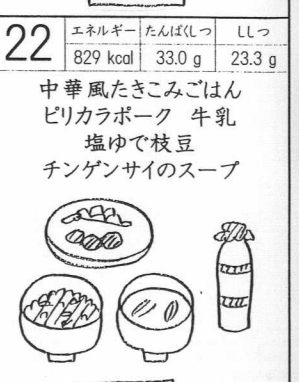 22 エネルギー たんぱくしつ ししつ
829 kcal 33.0 g 23.3 g
中華風たきこみごはん
ピリカラポーク 牛乳
塩ゆで枝豆
チンゲンサイのスープ